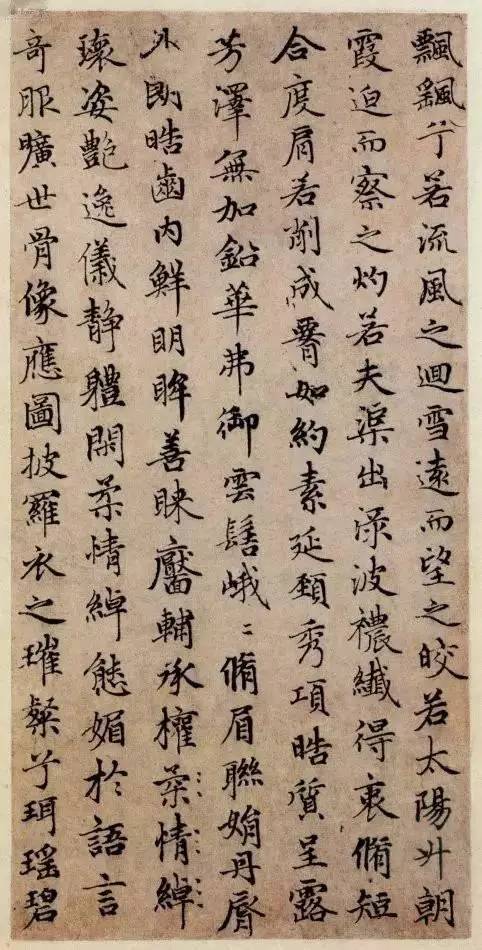 飄飖兮若流風之迴雪遠而望之皎若太陽升朝
霞迫而察之灼若夫渠出淥波穠纖得衷脩短
合度肩若削成腰如約素延頸秀項晧質呈露
芳澤無加鉛華弗御雲髻峨〻脩眉聯娟丹脣
外朗晧齒內鮮明眸善睞靨輔承權柔情綽
瓌姿艷逸儀靜體閑柔情綽態媚於語言
奇服曠世骨像應圖披羅衣之璀粲兮珥瑤碧